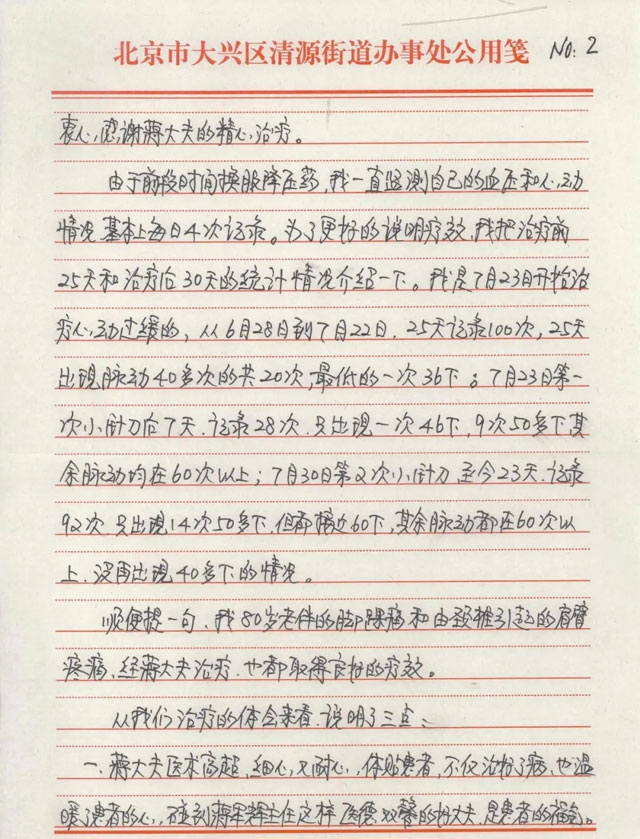 北京市大兴区清源街道办事处公用笺 NO: 2
衷心感谢蒋大夫的精心治疗。
由于前段时间换服降压药，我一直监测自己的血压和心动
情况基本上每日4次记录。为了更好的说明疗效，我把治疗前
25天和治疗后30天的统计情况介绍一下。我是7月23日开始治
疗心动过缓的，从6月28日到7月22日．25天记录100次，25天
出现脉动40多次的共20次，最低的一次36下；7月23日第一
次小针刀后7天．记录28次．只出现一次46下，9次50多下其
余脉动均在60次以上；7月30日第2次小针刀至今23天．记录
92次．只出现14次50多下，但都接近60下，其余脉动都在60次以
上．没再出现40多下的情况。
顺便提一句、我80岁老伴的脚踝痛和由颈椎引起的肩臂
疼痛、经蒋大夫治疗．也都取得良好的疗效。
从我们治疗的体会来看．说明了三点：
一、蒋大夫医术高超，细心又耐心，体贴患者，不仅治好了病，也温
暖了患者的心，碰到蒋军辉主任这样医德双馨的好大夫，是患者的福气。